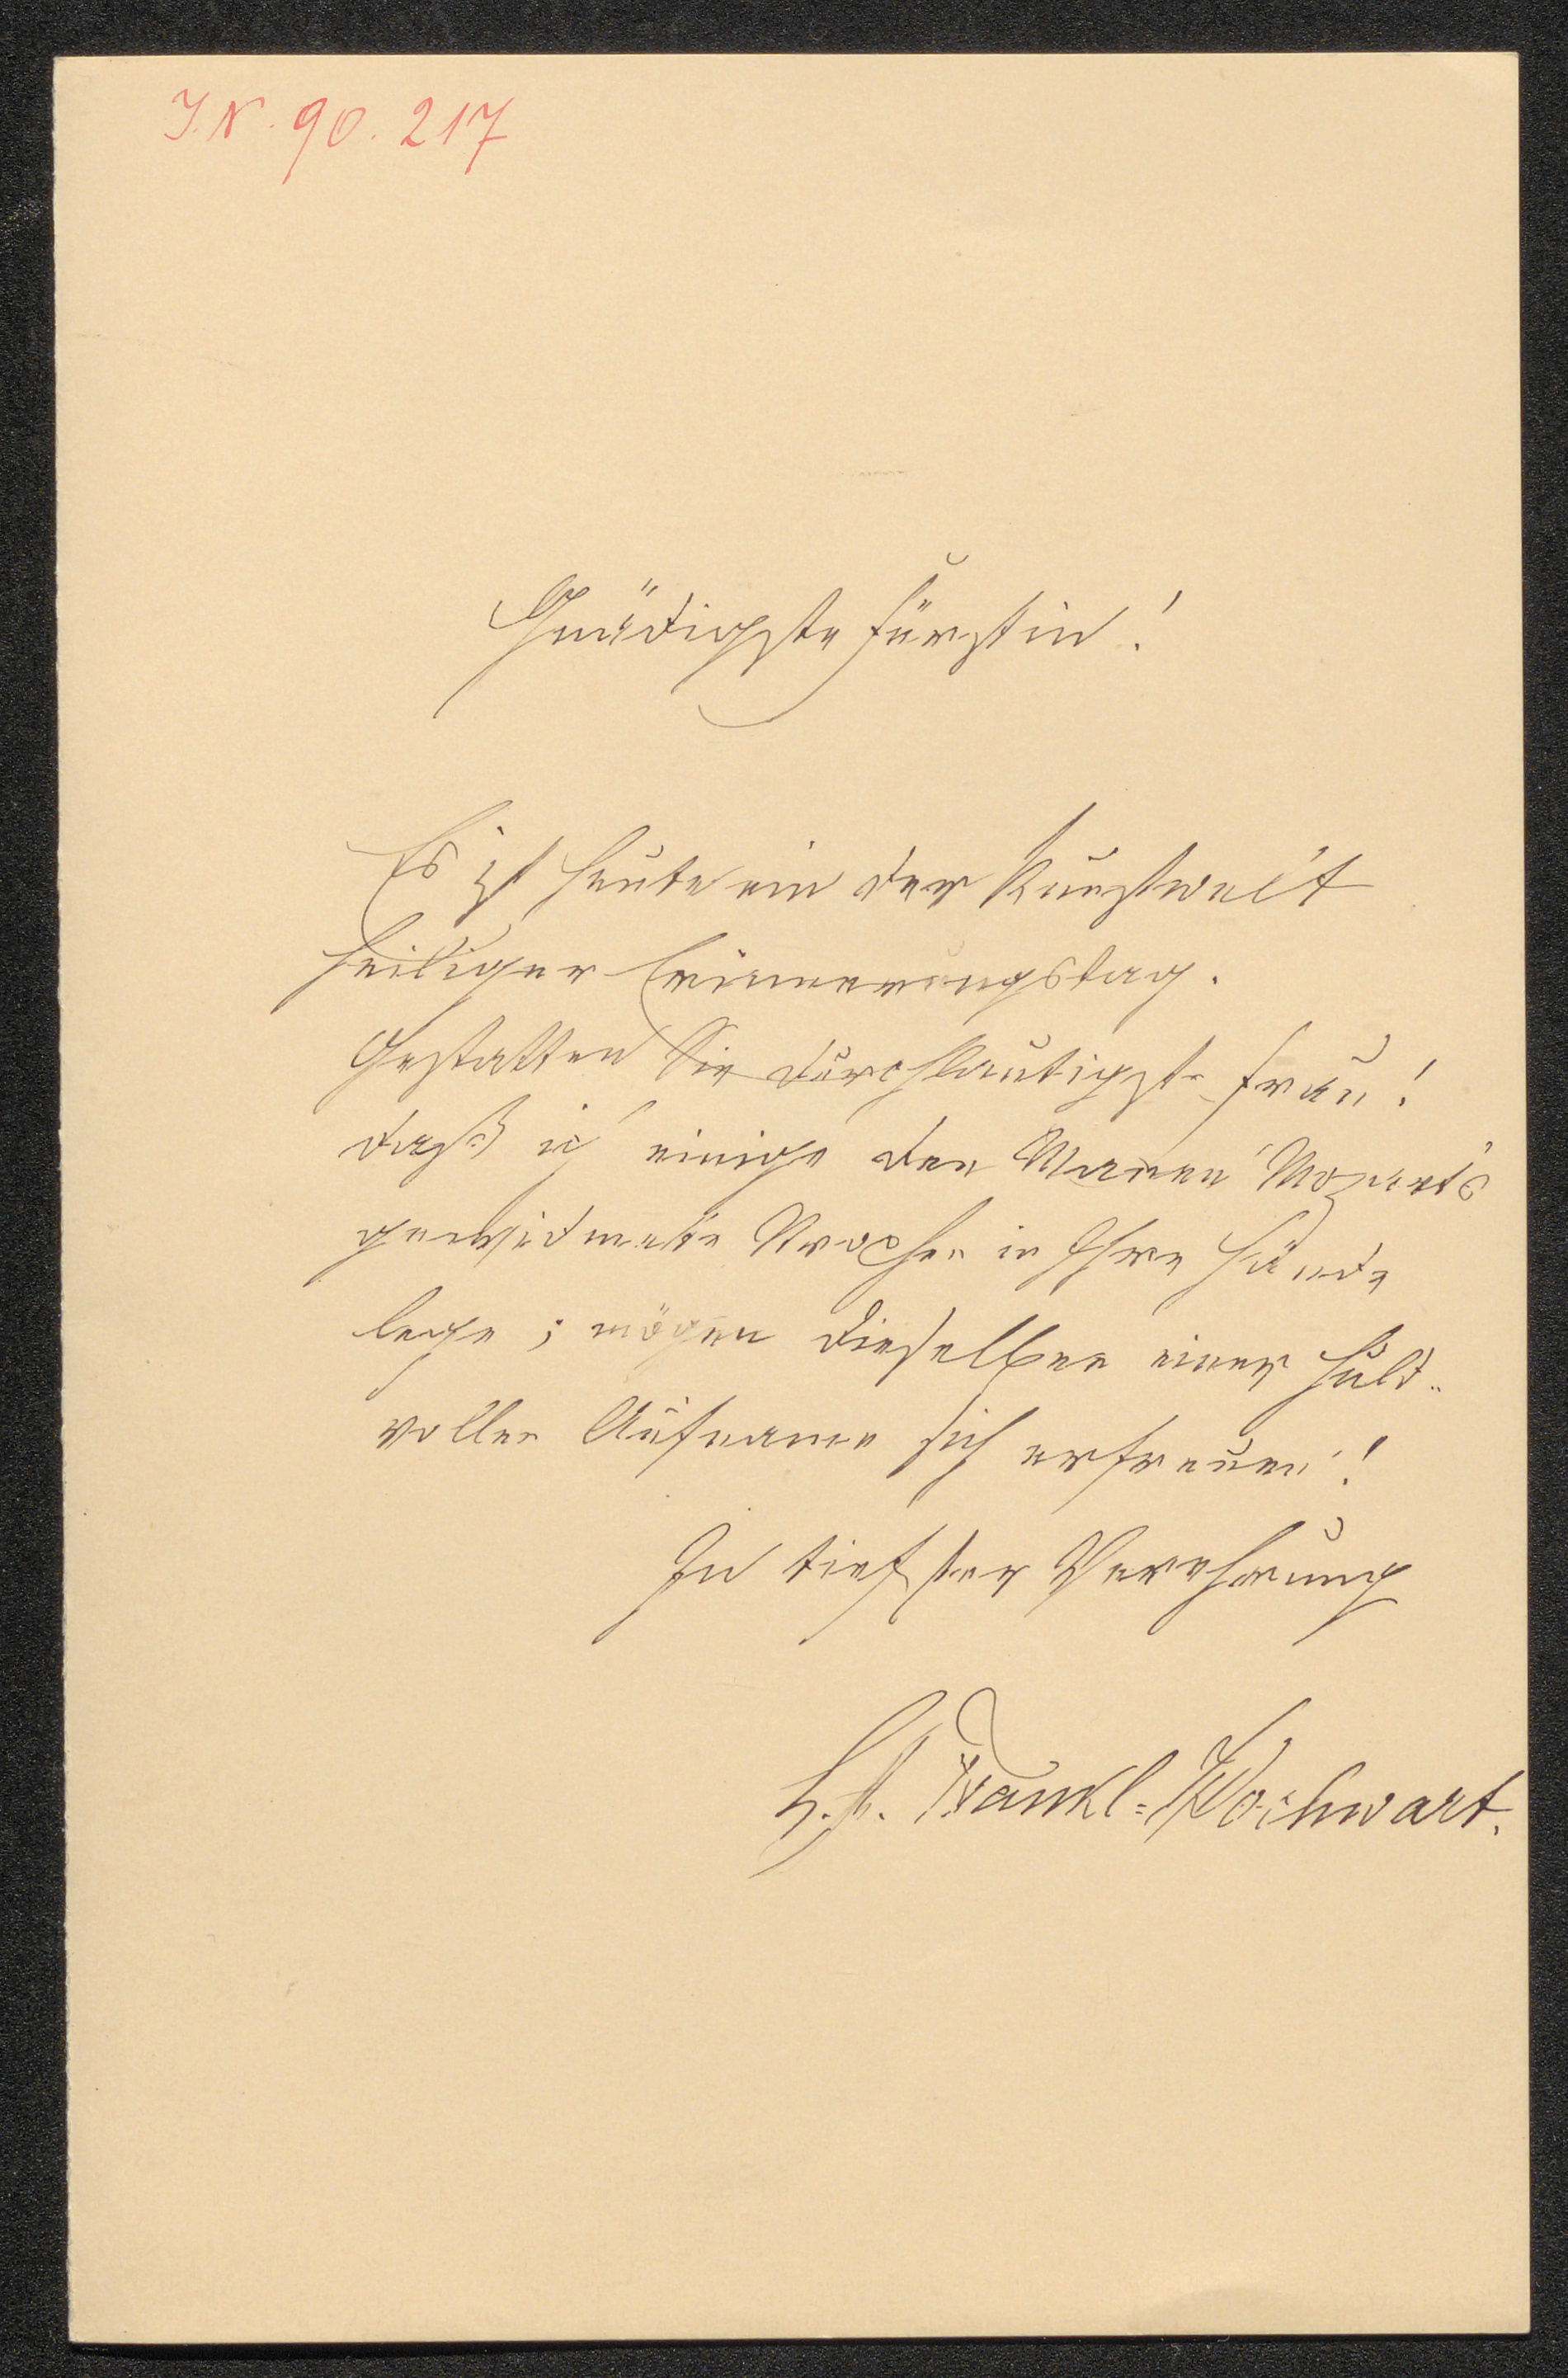 I. N. 90.217
Gnädigste Fürstin!
Es ist heute ein der Kunstwelt
heiliger Erinnerungstag.
Gestatten Sie durchlautigste Frau!
daß ich einige den Manen Mozart's
gewidmete Strophen in Ihre Hände
lege; mögen dieselben einer huld-
vollen Aufname sich erfreuen!
In tiefster Verehrung
L. A. Frankl-Hochwart.